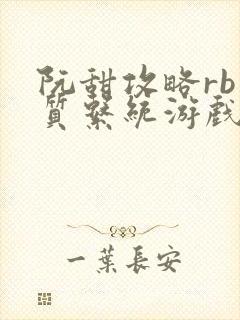 阮甜攻略rb
質繫統游戲
一葉長安